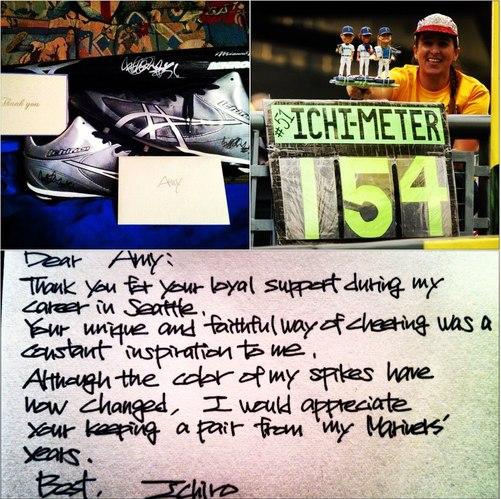 Thank you
Amy
ICHIRO
#51
ICHI-METER
154
Dear Amy:
Thank you for your loyal support during my
career in Seattle.
Your unique and faithful way of cheering was a
constant inspiration to me.
Although the color of my spikes have
now changed, I would appreciate
your keeping a pair from my Mariners'
years.
Best, Ichiro